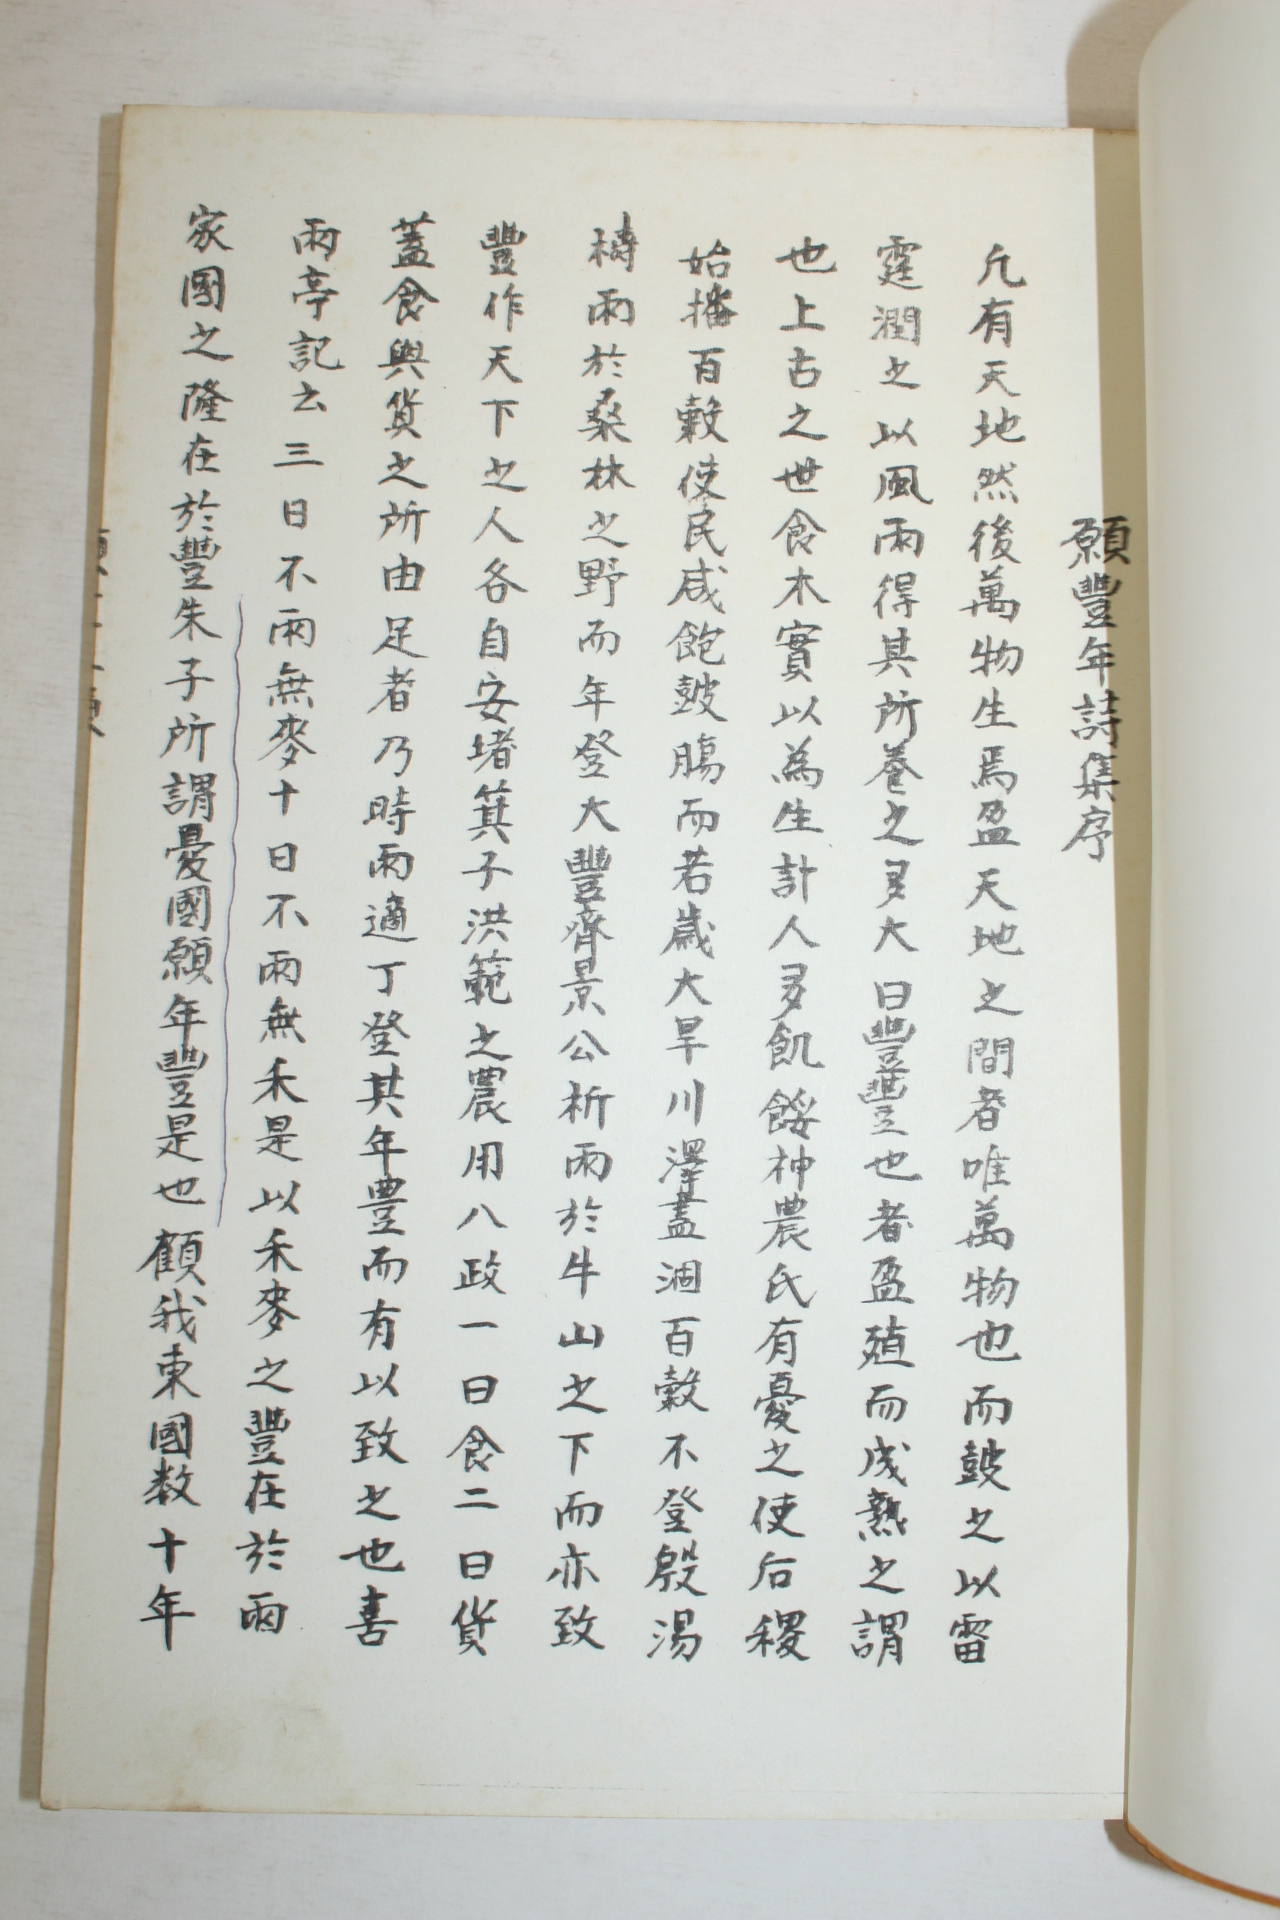 願豐年詩集序
凡有天地然後萬物生焉盈天地之間者唯萬物也而鼓之以雷
霆潤之以風雨得其所養之多大曰豐豐也者盈殖而成熟之謂
也上古之世食木實以為生計人多飢餒神農氏有憂之使后稷
始播百穀使民咸飽鼓腸而若歲大旱川澤盡涸百穀不登殷湯
禱雨於桑林之野而年登大豐齊景公祈雨於牛山之下而亦致
豐作天下之人各自安堵箕子洪範之農用八政一曰食二曰貨
蓋食與貨之所由足者乃時雨適丁登其年豊而有以致之也喜
雨亭記云三日不雨無麥十日不雨無禾是以禾麥之豐在於雨
家國之隆在於豐朱子所謂憂國願年豐是也顧我東國数十年